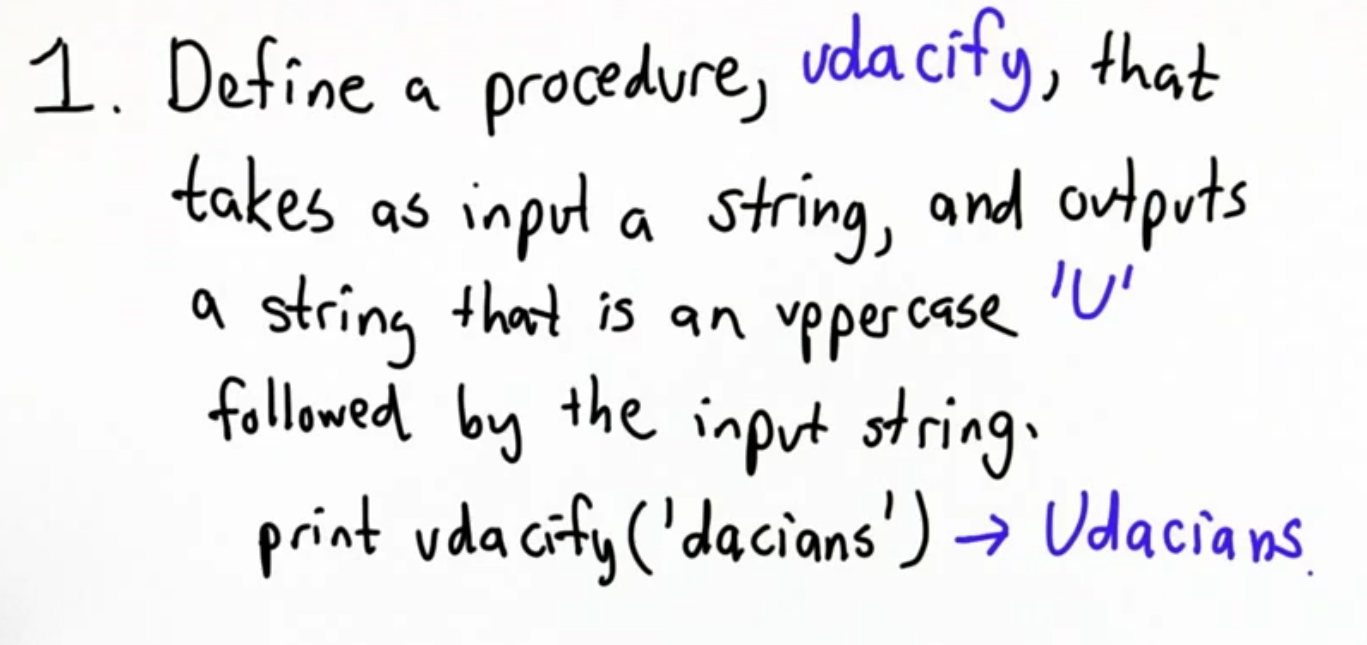 1. Define a procedure, udacify, that
takes as input a string, and outputs
a string that is an uppercase 'U'
followed by the input string.
print udacify('dacians') → Udacians.